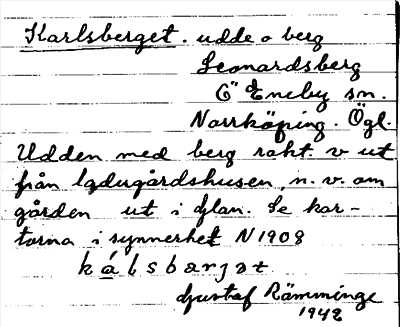 Karlsberget. udde o berg
Leonardsberg
Ö Eneby sn.
Norrköping. Ögl.
Udden med berg rakt v ut
från ladugårdshusen, n. v. om
gården ut i Glan. Se kar-
torna i synnerhet N 1908
kálsbarjat
Gustaf Rämminge
1942